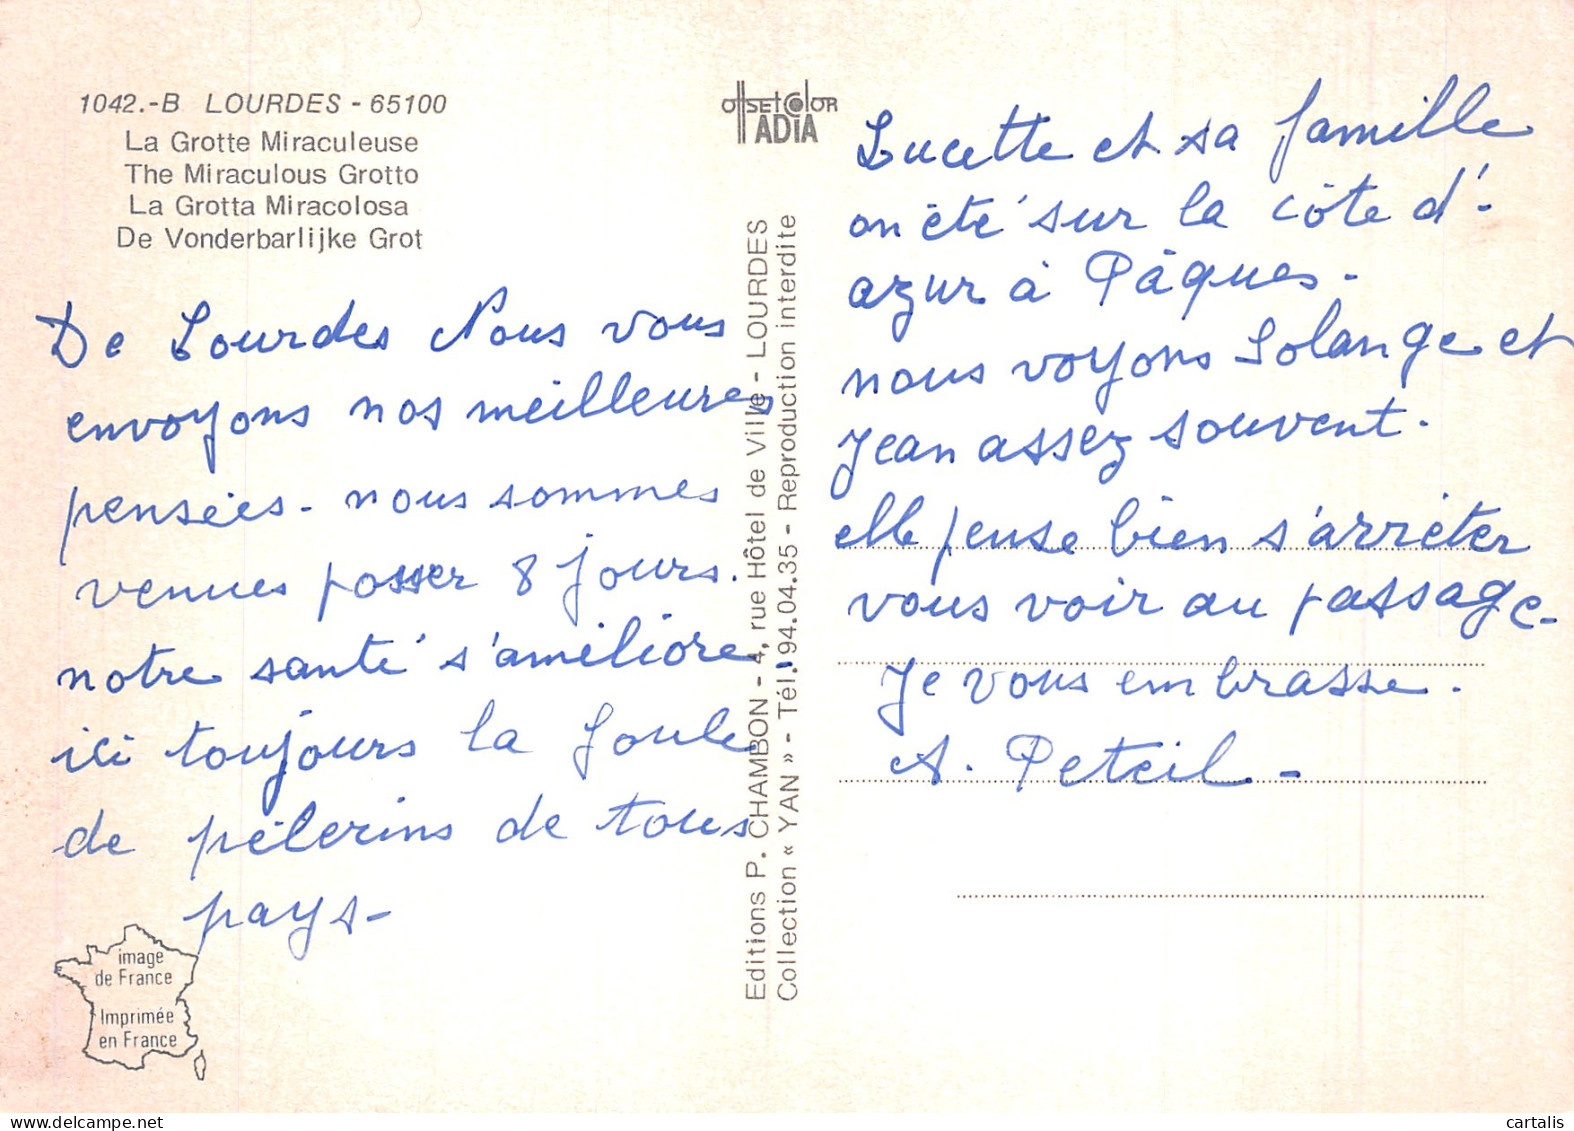 1042.-B LOURDES - 65100
La Grotte Miraculeuse
The Miraculous Grotto
La Grotta Miracolosa
De Vonderbarlijke Grot
De Lourdes Nous vous
envoyons nos meilleures
pensées - nous sommes
venues passer 8 jours.
notre santé s'améliore
ici toujours la foule
de pélerins de tous
pays -
image
de France
Imprimée
en France
offset color
ADIA
Editions P. CHAMBON - 4, rue Hôtel de Ville - LOURDES
Collection « YAN » - Tél. 94.04.35 - Reproduction interdite
Lucette et sa famille
on été sur la côte d'-
azur à Pâques -
nous voyons Solange et
Jean assez souvent.
elle pense bien s'arrêter
vous voir au passage -
Je vous embrasse.
A. Peteil -
cartalis